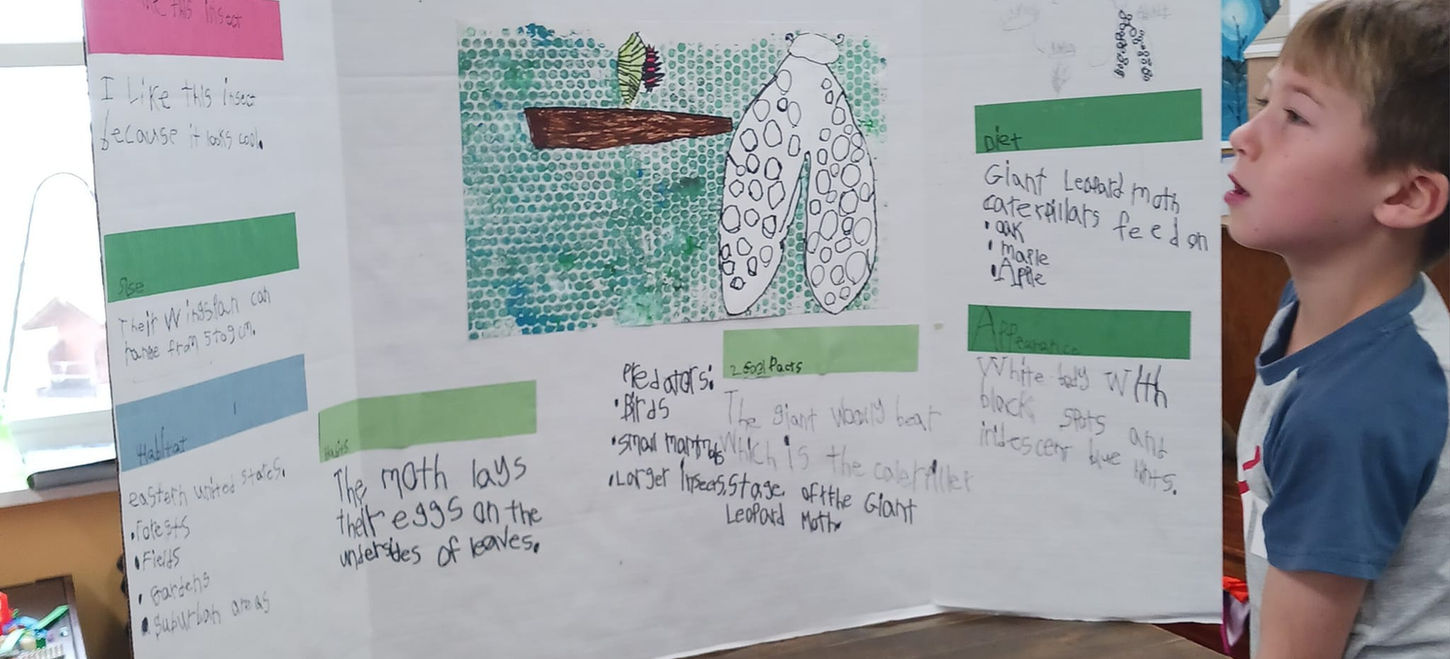 this insect
I Like this insect
because it looks cool.
Size
Their Wingspan can
range from 5 to 9 cm.
Habitat
eastern united states.
• Forests
• Fields
• Gardens
• suburban areas
Habits
The moth lays
their eggs on the
undersides of leaves.
Predators:
• Birds
• small mammals
• Larger Insects
2 cool Facts
The giant woolly bear
Which is the caterpiller
stage of the Giant
Leopard Moth.
Diet
Giant Leopard moth
caterpillars feed on
• oak
• maple
• Apple
Appearance
White body With
black spots and
iridescent blue tints.